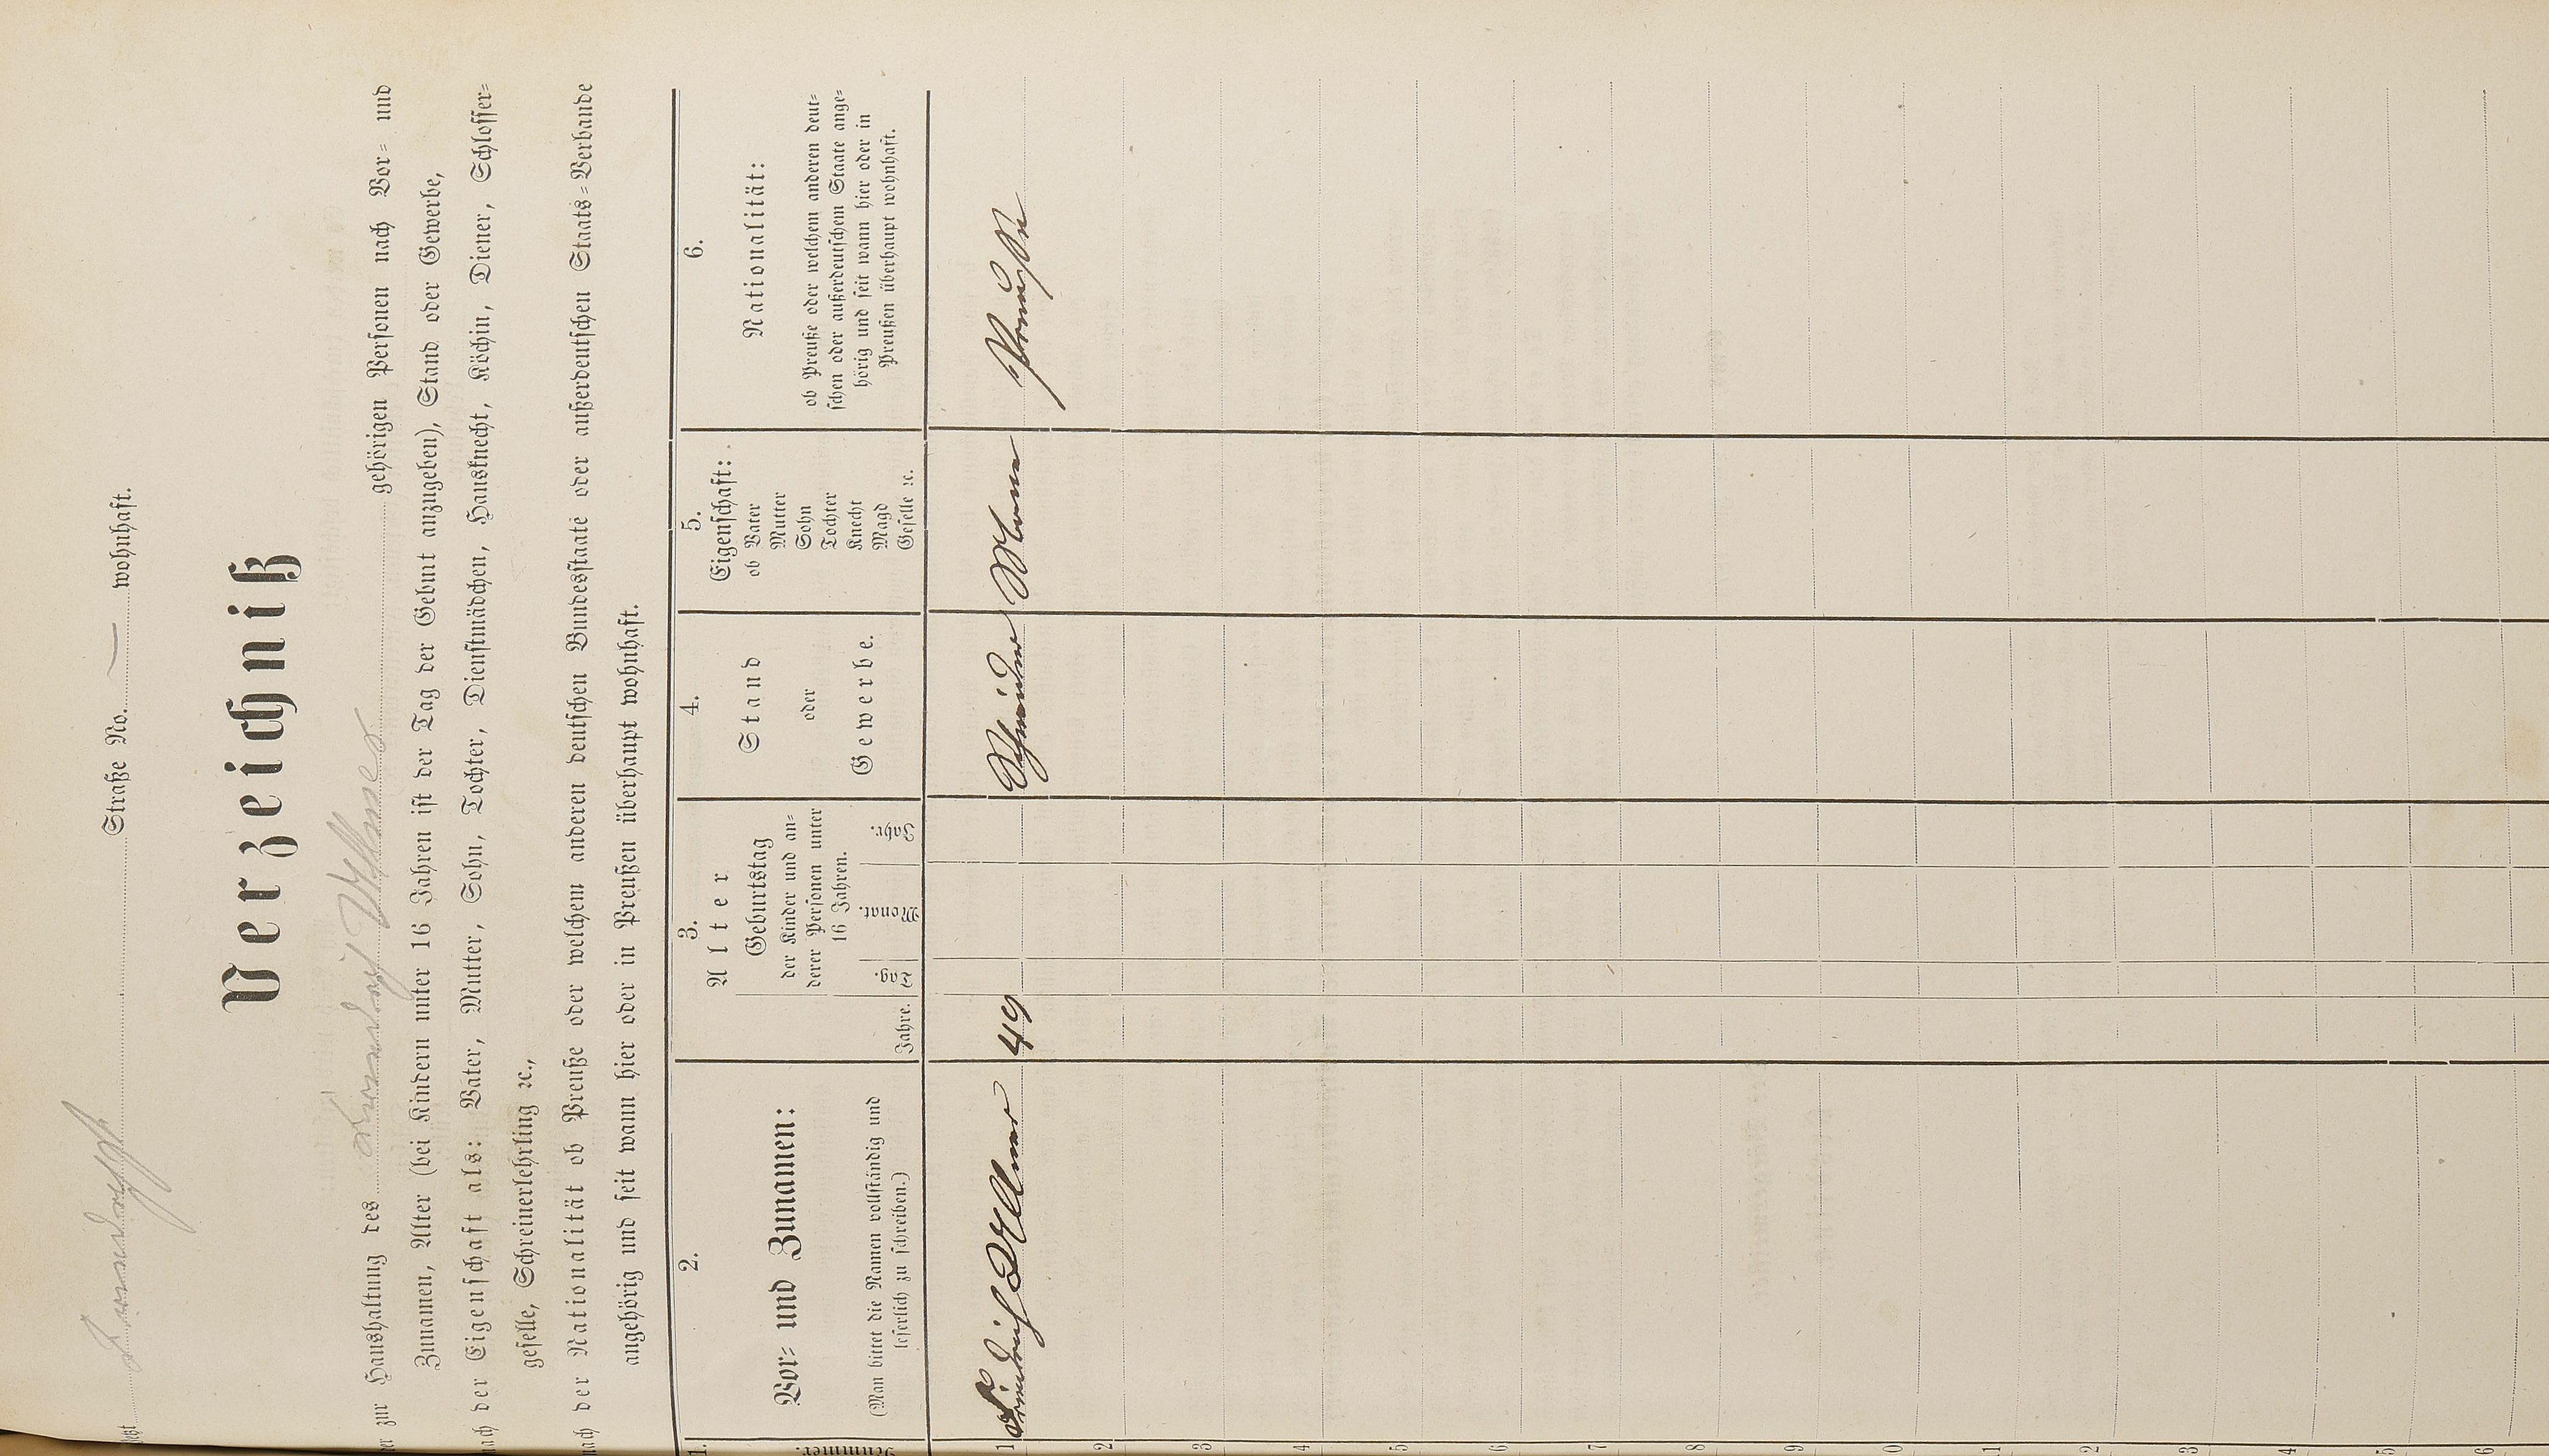 jetzt Straße No. — wohnhaft.
Verzeichniß
der zur Haushaltung des Friedrich Vollmer gehörigen Personen nach Vor- und
Zunamen, Alter (bei Kindern unter 16 Jahren ist der Tag der Geburt anzugeben), Stand oder Gewerbe,
nach der Eigenschaft als: Vater, Mutter, Sohn, Tochter, Dienstmädchen, Hausknecht, Köchin, Diener, Schlosser-
geselle, Schreinerlehrling ꝛc.,
nach der Nationalität ob Preuße oder welchem anderen deutschen Bundesstaate oder außerdeutschen Staats-Verbande
angehörig und seit wann hier oder in Preußen überhaupt wohnhaft.
1.
2.
Vor- und Zunamen:
(Man bittet die Namen vollständig und
leserlich zu schreiben.)
3.
Alter
Jahre.
Geburtstag
der Kinder und an-
derer Personen unter
16 Jahren.
Tag.
Monat.
Jahr.
4.
Stand
oder
Gewerbe.
5.
Eigenschaft:
ob Vater
Mutter
Sohn
Tochter
Knecht
Magd
Geselle ꝛc.
6.
Nationalität:
ob Preuße oder welchem anderen deut-
schen oder außerdeutschem Staate ange-
hörig und seit wann hier oder in
Preußen überhaupt wohnhaft.
1 Friedrich Vollmer 49 Schneider Mann Preuße
2
3
4
5
6
7
8
9
0
11
2
3
4
5
6